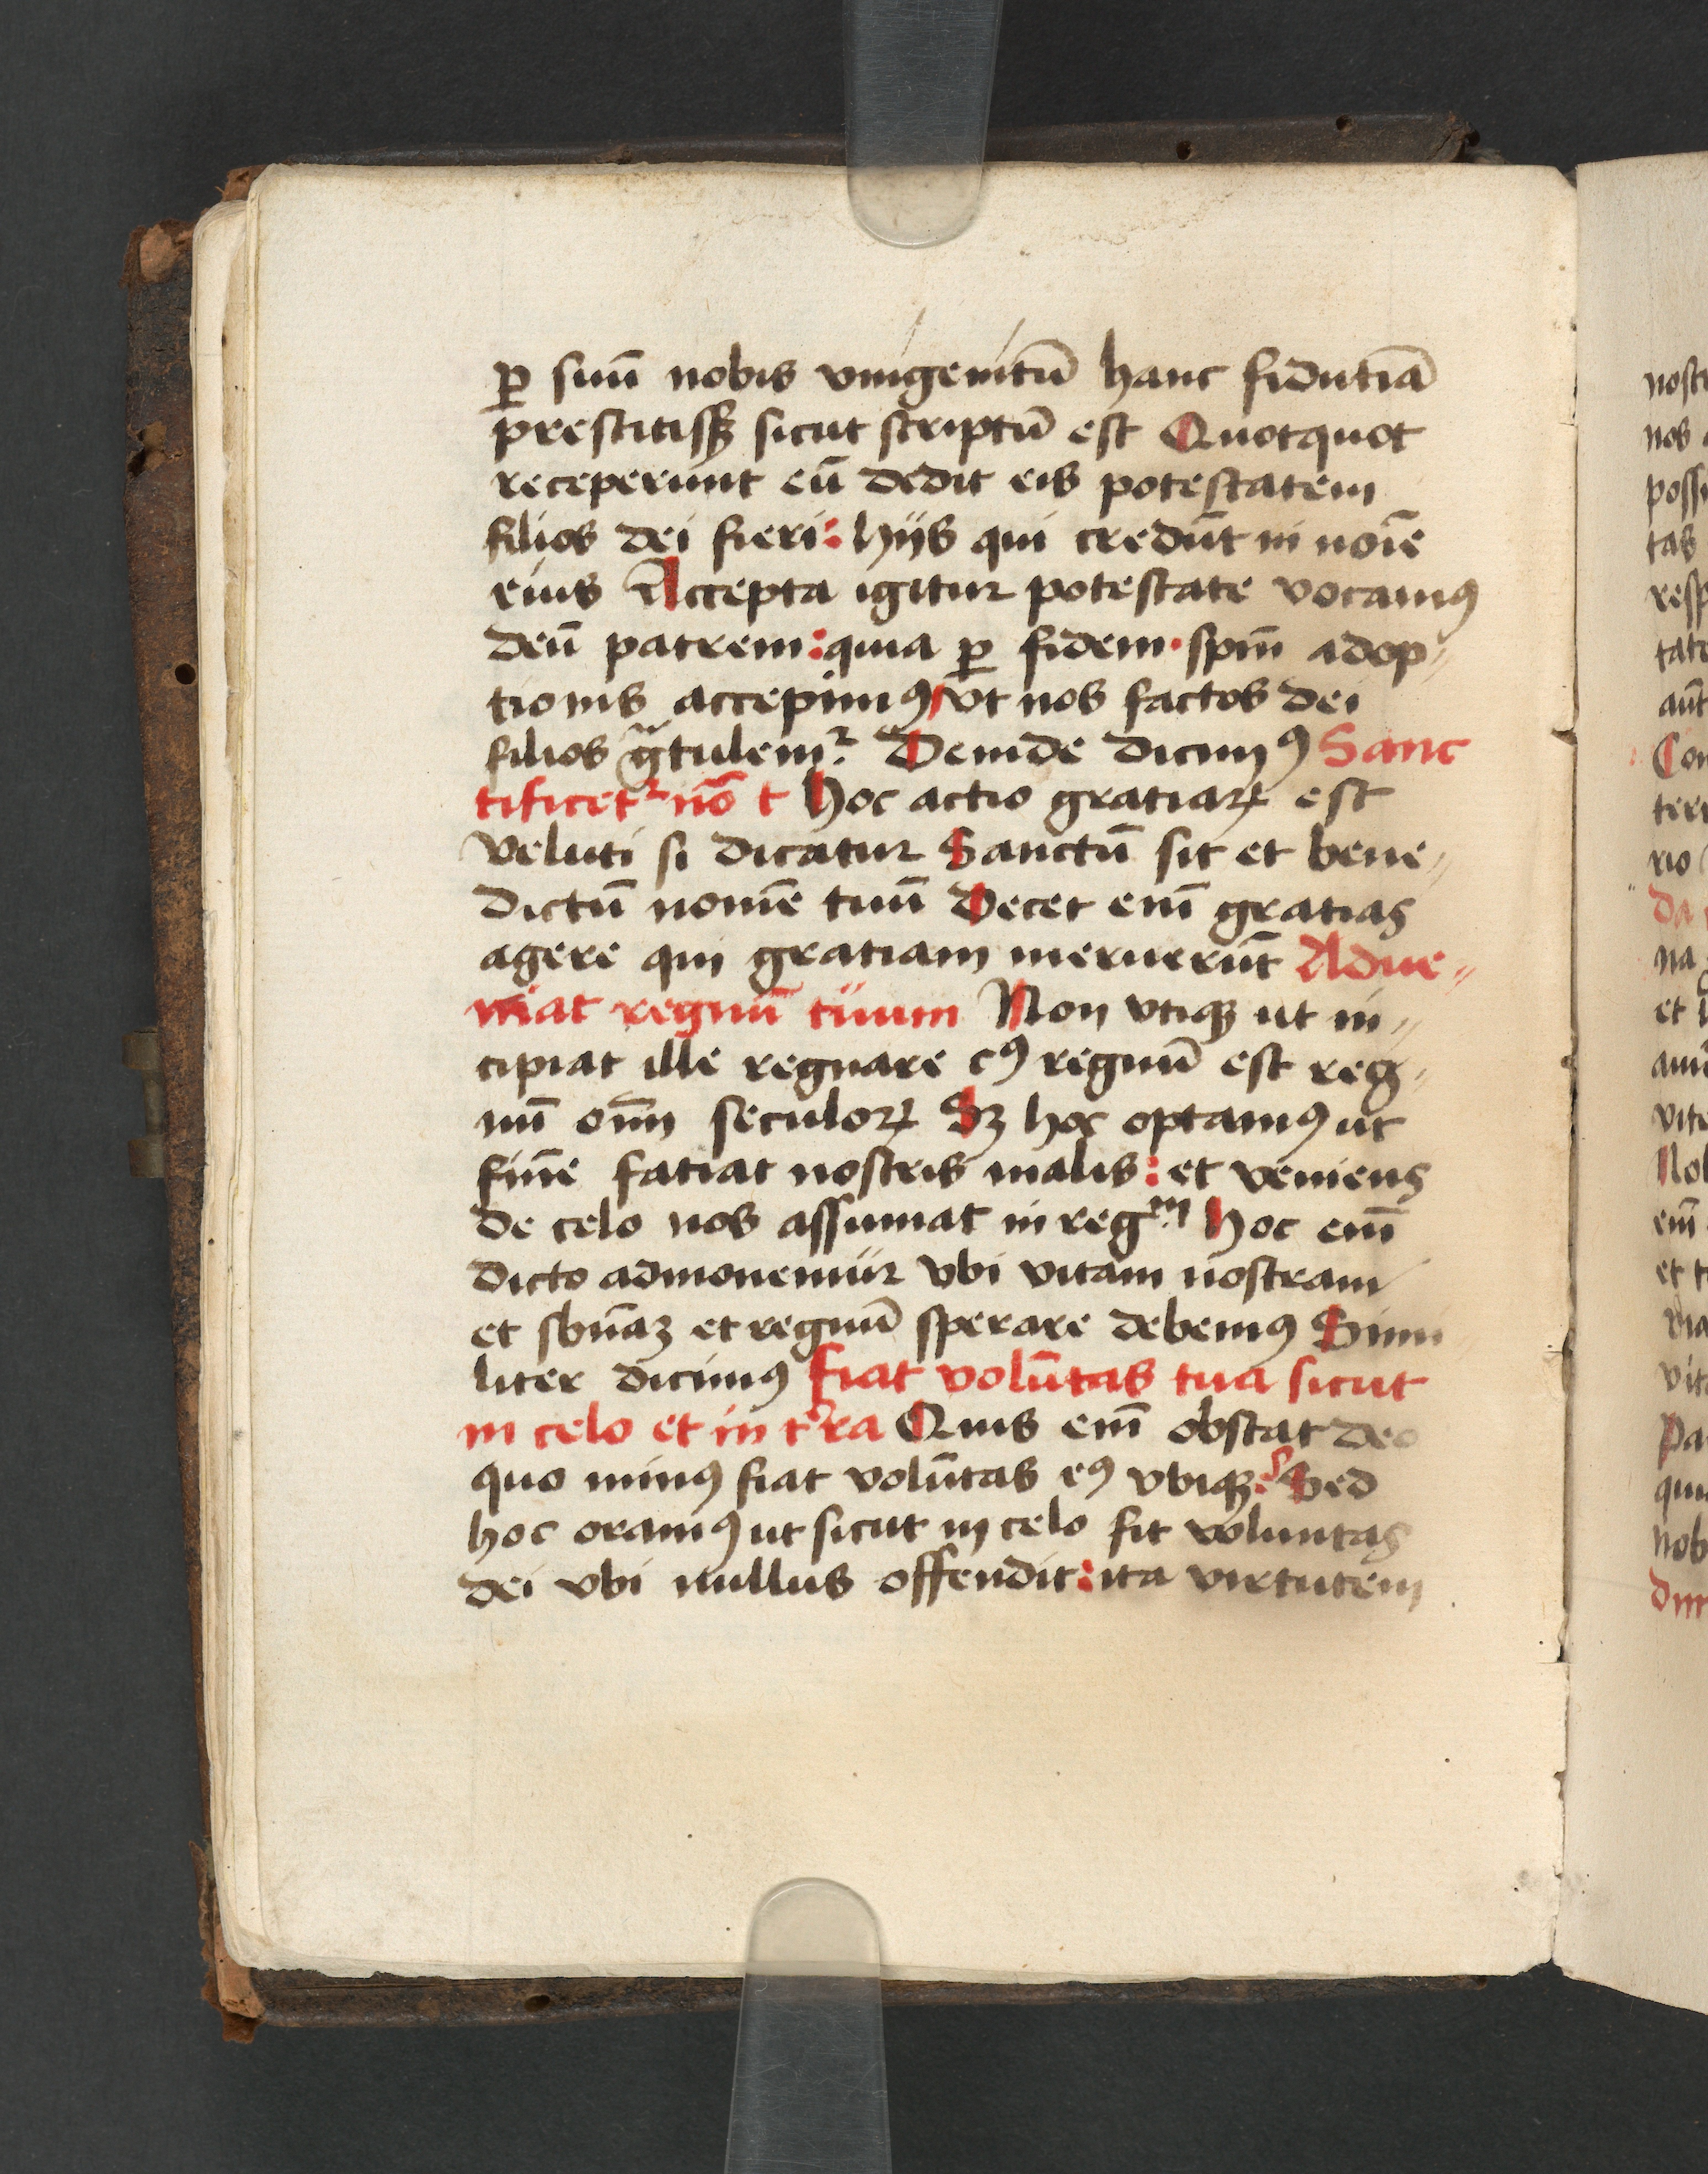 ꝑ suū nobis vnigenitū hanc fidutiā
prestitisꝫ sicut scriptū est Quotquot
receperunt eū dedit eis potestatem
filios dei fieri: hijs qui credūt in noīe
eius Accepta igitur potestate vocamꝰ
deū patrem: quia ꝑ fidem · spm̄ adop⸗
tionis accepimꝰ / vt nos factos dei
filios gᷓtulemr̉. Deinde dicimꝰ Sanc
tificetr̉ nō t Hoc actio gratiaꝝ est
veluti si dicatur Sanctū sit et bene⸗
dictū nomē tuū Decet enī gratias
agere qui gratiam meruerūt Adue⸗
niat regnū tuum Non vtiqꝫ ut in⸗
cipiat ille regnare cꝰ regnū est reg⸗
nū om̄i seculoꝝ Sꝫ hoc optamꝰ ut
finē fatiat nostris malis: et veniens
de celo nos assumat in regᵐ Hoc enī
dicto admonemur vbi vitam nostram
et sb̄n̄aꝫ et regnū sperare debemꝰ Simi
liter dicimꝰ fiat volūtas tua sicut
in celo et in tʼra Quis enī obstat deo
quo minꝰ fiat volūtas eꝰ vbiqꝫ? Sed
hoc oramꝰ ut sicut in celo fit voluntas
dei vbi nullus offendit: ita virtutem